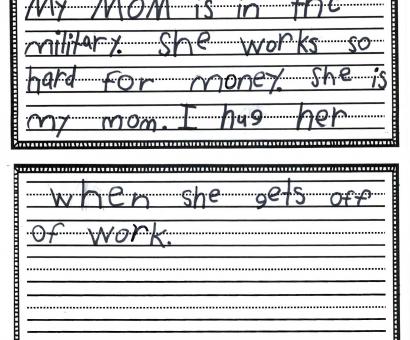 My MOM is in the
military. She works so
hard for money. She is
my mom. I hug her
when she gets off
of work.